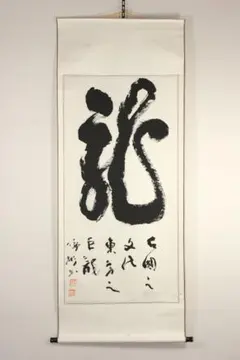 龍
古國之
文化
東方之
巨龍